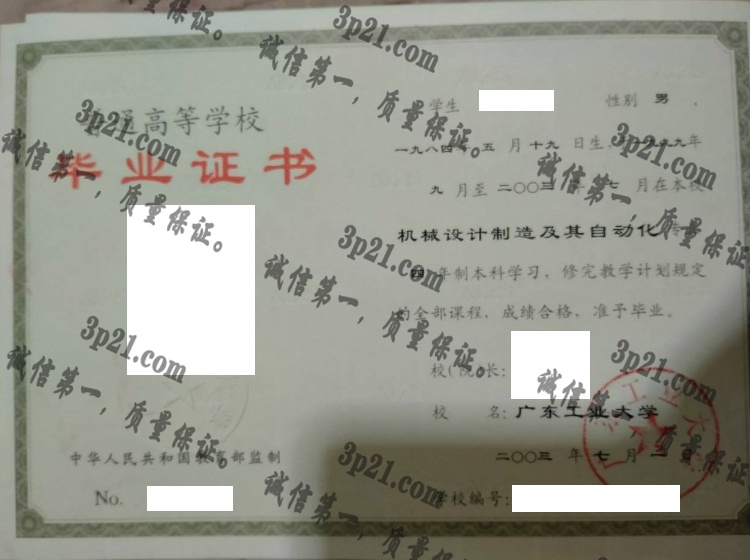 通高等学校
毕业证书
中华人民共和国教育部监制
No.
学生 性别 男，
一九八四年五月十九日生，一九九九年
九月至二〇〇三年七月在本校
机械设计制造及其自动化专
四年制本科学习，修完教学计划规定
的全部课程，成绩合格，准予毕业。
校（院）长：
校 名：广东工业大学
二〇〇三年七月一日
学校编号：
工业大
3p21.com
诚信第一，质量保证。
3p21.com
诚信第一，质量保证。
3p21.com
诚信第一，质量保证。
3p21.com
诚信第一，质量保证。
3p21.com
诚信第一，质量保证。
3p21.com
诚信第一，质量保证。
3p21.com
诚信第一，质量保证。